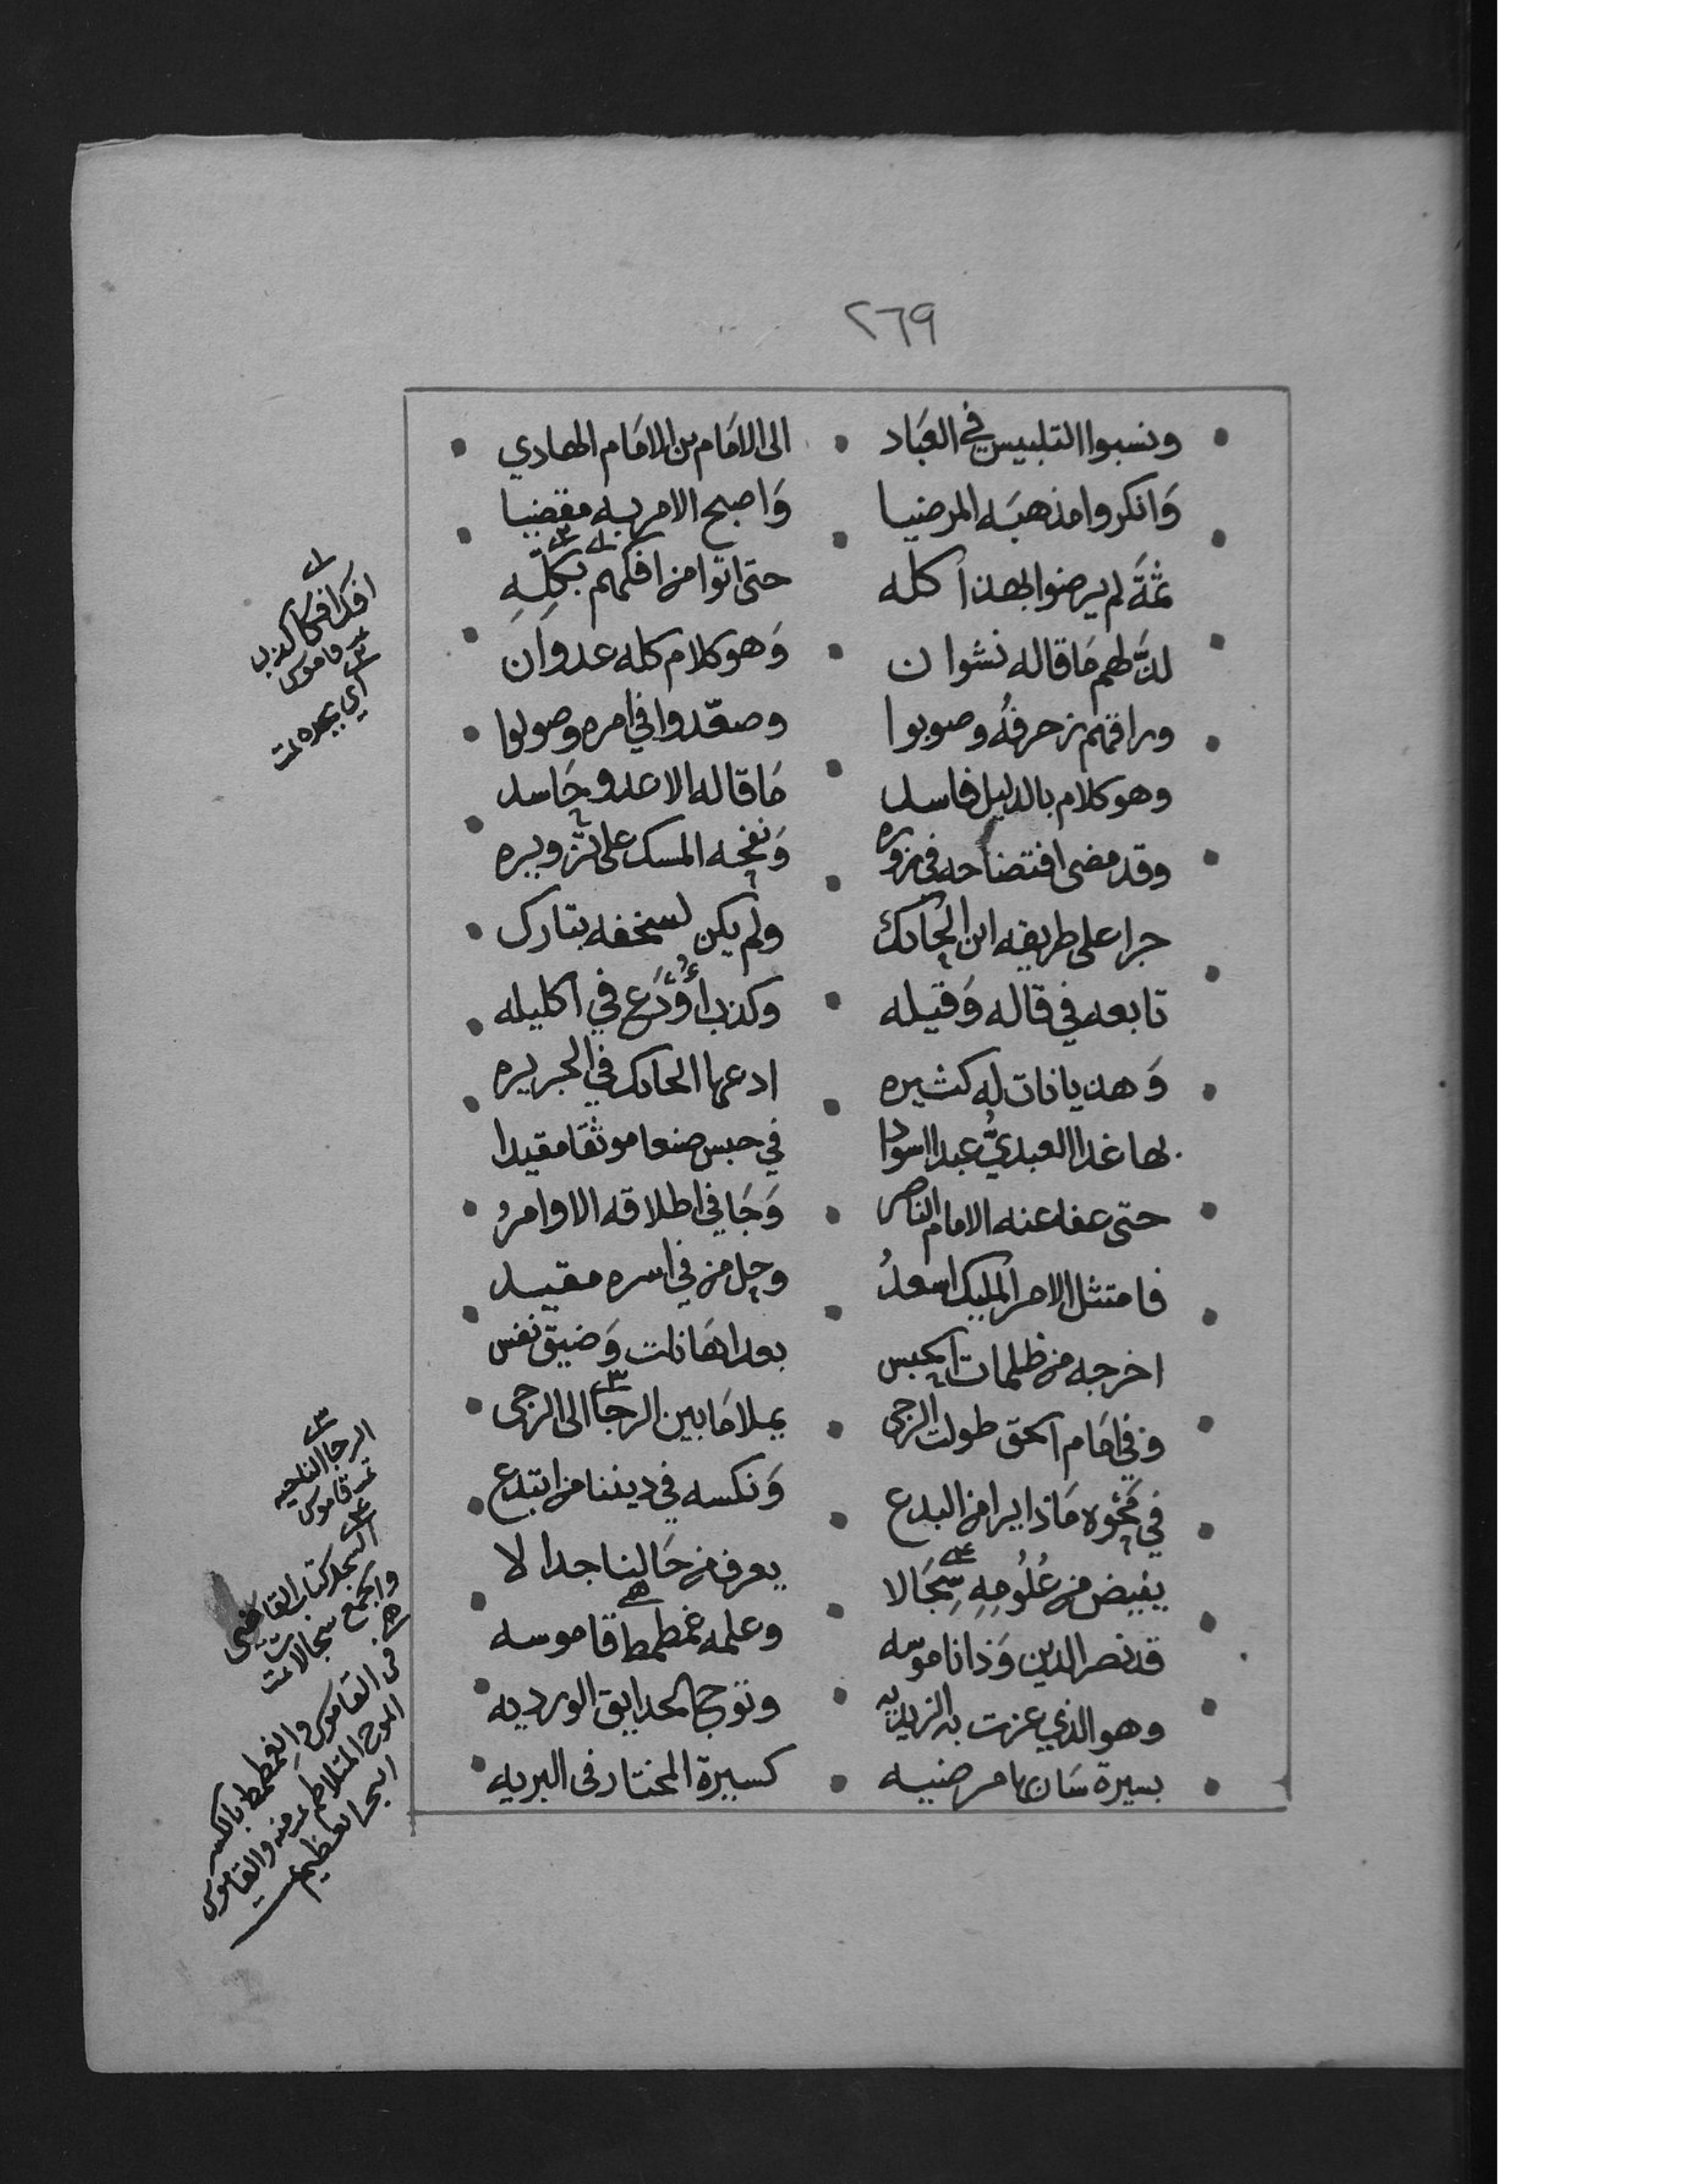 ٢٦٩
ونسبوا التلبيس في العباد • الى الامام بن الامام الهادي
وانكروا مذهبه المرضيا • واصبح الامر به مقضيا
ثمة لم يرضوا بهذا كله • حتى اتوا من افكهم بكله
لذ لهم ما قاله نشوان • وهو كلام كله عدوان
وراقهم زحرفه وصوبوا • وصعدوا في امره وصوبوا
وهو كلام بالدليل فاسد • ما قاله الا عدو حاسد
وقد مضى افتضاحه في زوره • ونفحه المسك على تزويره
جرا على طريقه ابن الحائك • ولم يكن لسخفه بتارك
تابعه في قاله وقيله • وكذب اودع في اكليله
وهذيانات له كثيره • ادعها الحائك في الجريره
بها غدا العبدي عبدا اسودا • في حبس صنعا موثقا مقيدا
حتى عفا عنه الامام الناصر • وجا في اطلاقه الاوامر
فامتثل الامر المليك اسعد • وحل من في اسره مقيد
اخرجه من ظلمات الحبس • بعد اهانات وضيق نفس
وفي امام الحق طولت الرجى • يملا ما بين الرجا الى الرجى
في نحوه ماذا يرا من البدع • ونكسه في ديننا من ابتدع
يفيض من علومه سجالا • يعرف من حالنا جدالا
قد نصر الدين وذا ناموسه • وعلمه غمطمط قاموسه
وهو الذي عزت به الزيديه • وتوج الحدايق الورديه
بسيرة سار بها مرضيه • كسيرة المختار في البريه
افك افكا كذب
قاموس
الرجا الناحيه
تمت قاموس
السجل كتاب القاضي
والجمع سجالات تمت
من القاموس والغمطمط بالكسر
الموج المتلاطم تمت منه والقاموس
البحر العظيم